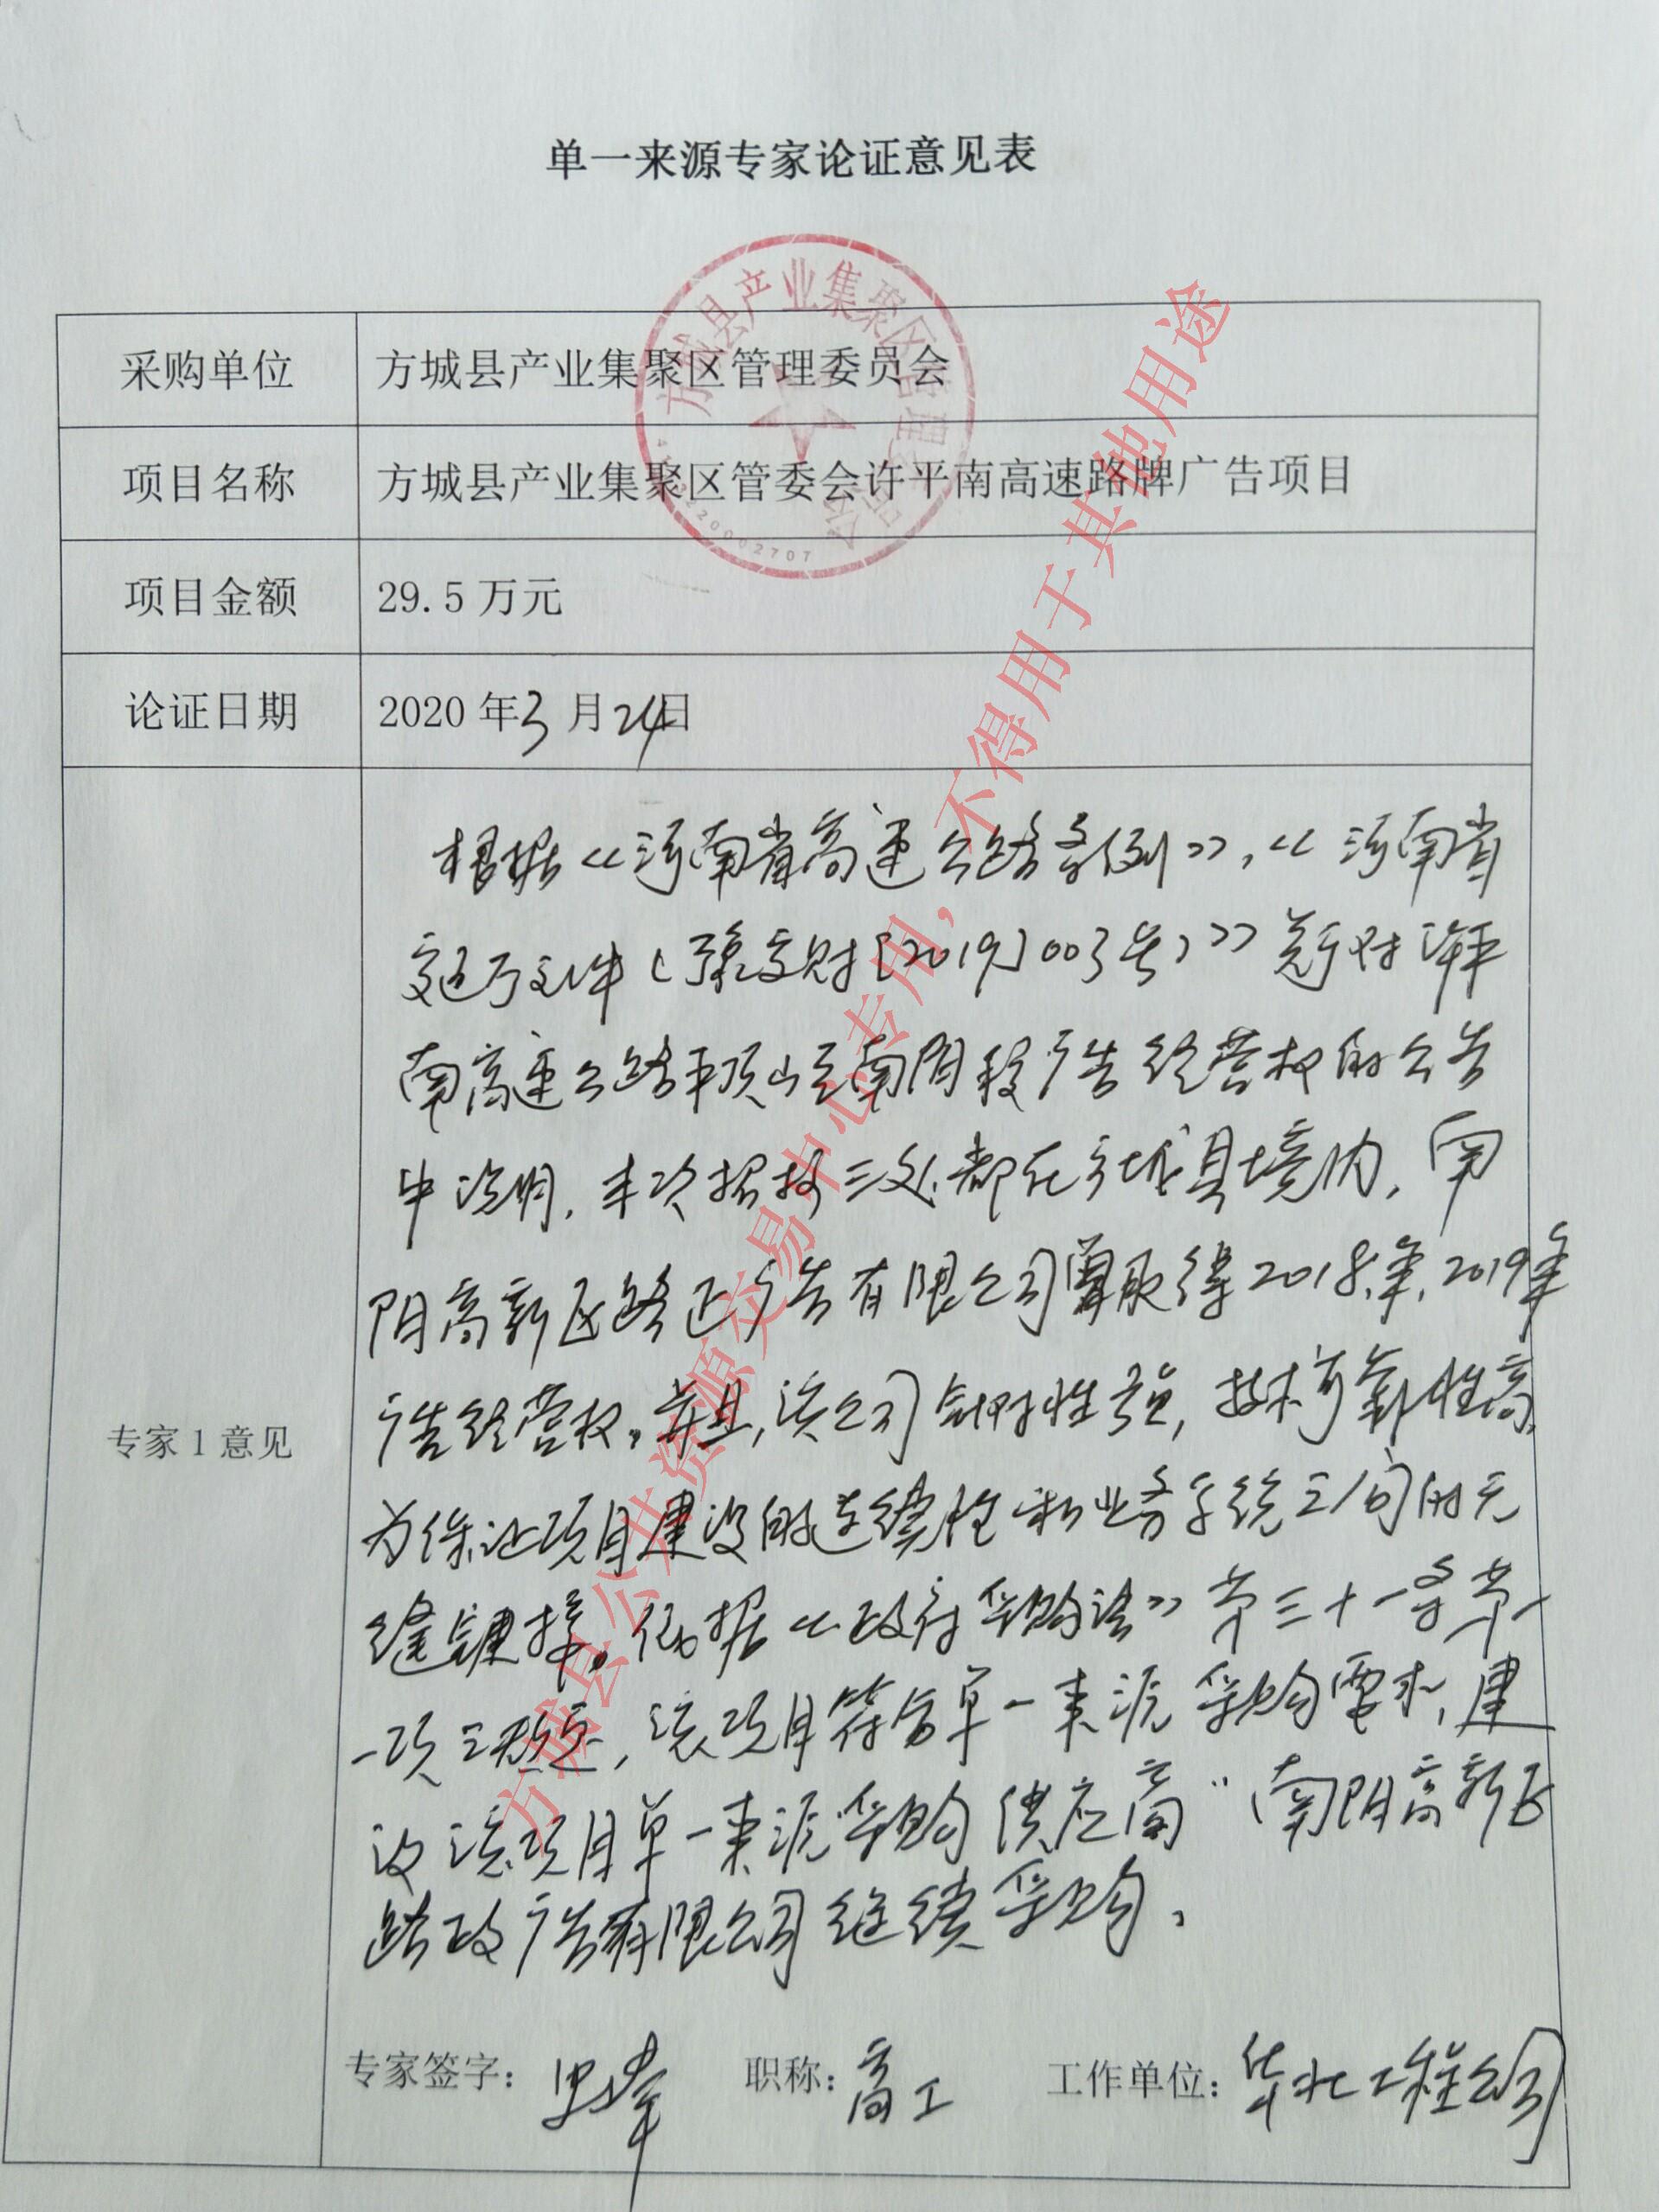 单一来源专家论证意见表
方城县产业集聚区管理委员会
4113220002707
采购单位 方城县产业集聚区管理委员会
项目名称 方城县产业集聚区管委会许平南高速路牌广告项目
项目金额 29.5万元
论证日期 2020年3月24日
根据《河南省高速公路条例》,《河南省
交通厅文件(豫交财[2019]003号)》关于对许平
南高速公路平顶山至南阳段广告经营权的公告
中说明,本次招标三处都在方城县境内,南
阳高新区路政广告有限公司曾取得2018年,2019年
广告经营权。并且,该公司针对性强,技术可靠性高,
专家1意见
为保证项目建设的连续性和业务系统之间的无
缝键接。依据《政府采购法》第三十一条第
一项之规定,该项目符合单一来源采购需求,建
议该项目单一来源采购供应商“南阳高新区
路政广告有限公司继续采购。
专家签字: 职称:高工 工作单位:华北工程公司
方城县公共资源交易中心专用,不得用于其他用途